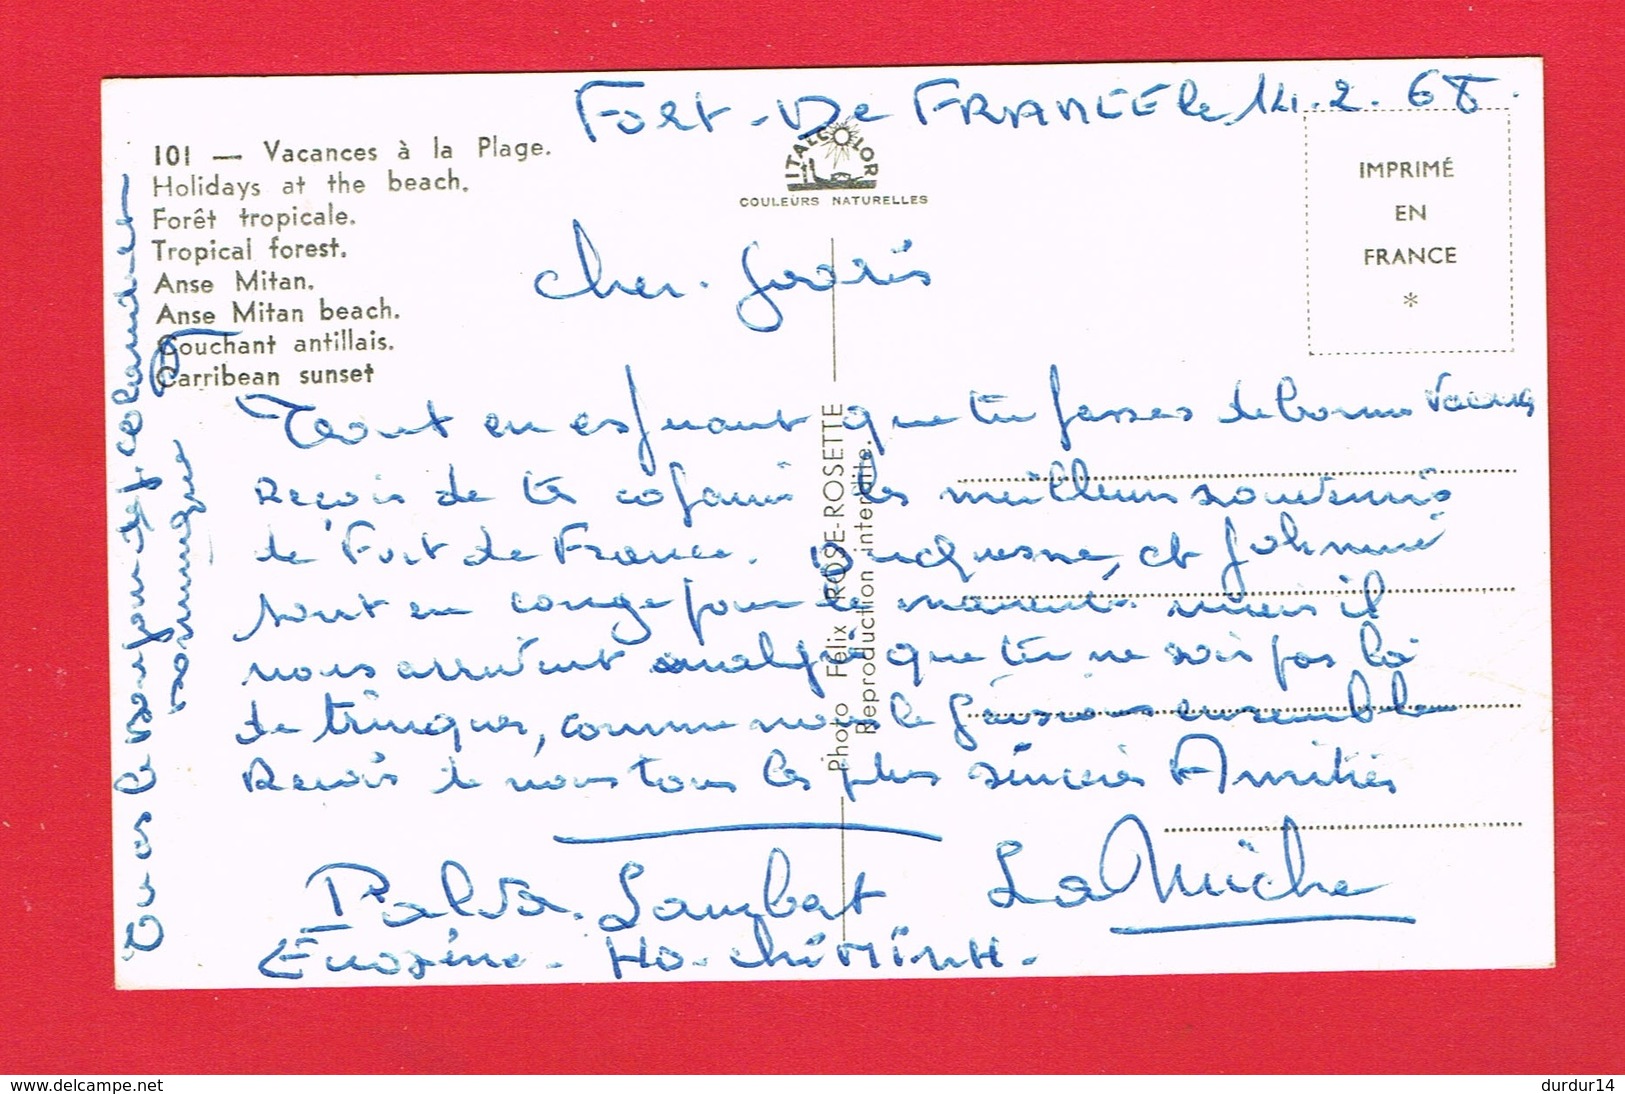 Fort-De FRANCE le 14.2.68.
101 — Vacances à la Plage.
Holidays at the beach.
Forêt tropicale.
Tropical forest.
Anse Mitan.
Anse Mitan beach.
Couchant antillais.
Carribean sunset
ITALCOLOR
COULEURS NATURELLES
IMPRIMÉ
EN
FRANCE
*
Cher.
Tout en espérant que tu passes de bonnes vacances
Reçois de tes copains les meilleurs souvenirs
de Fort de France. Duquesne, et Johnnie
sont en congé pour le moment. mais il
nous arrivent malgré que tu ne sois pas là
de trinquer, comme nous le faisions ensemble
Reçois de nous tous les plus sincères Amitiés
Lambat La Miche
Ho-chiMinh.
Tu as le bonjour de
Photo Félix ROSE-ROSETTE
Reproduction interdite.
www.delcampe.net
durdur14